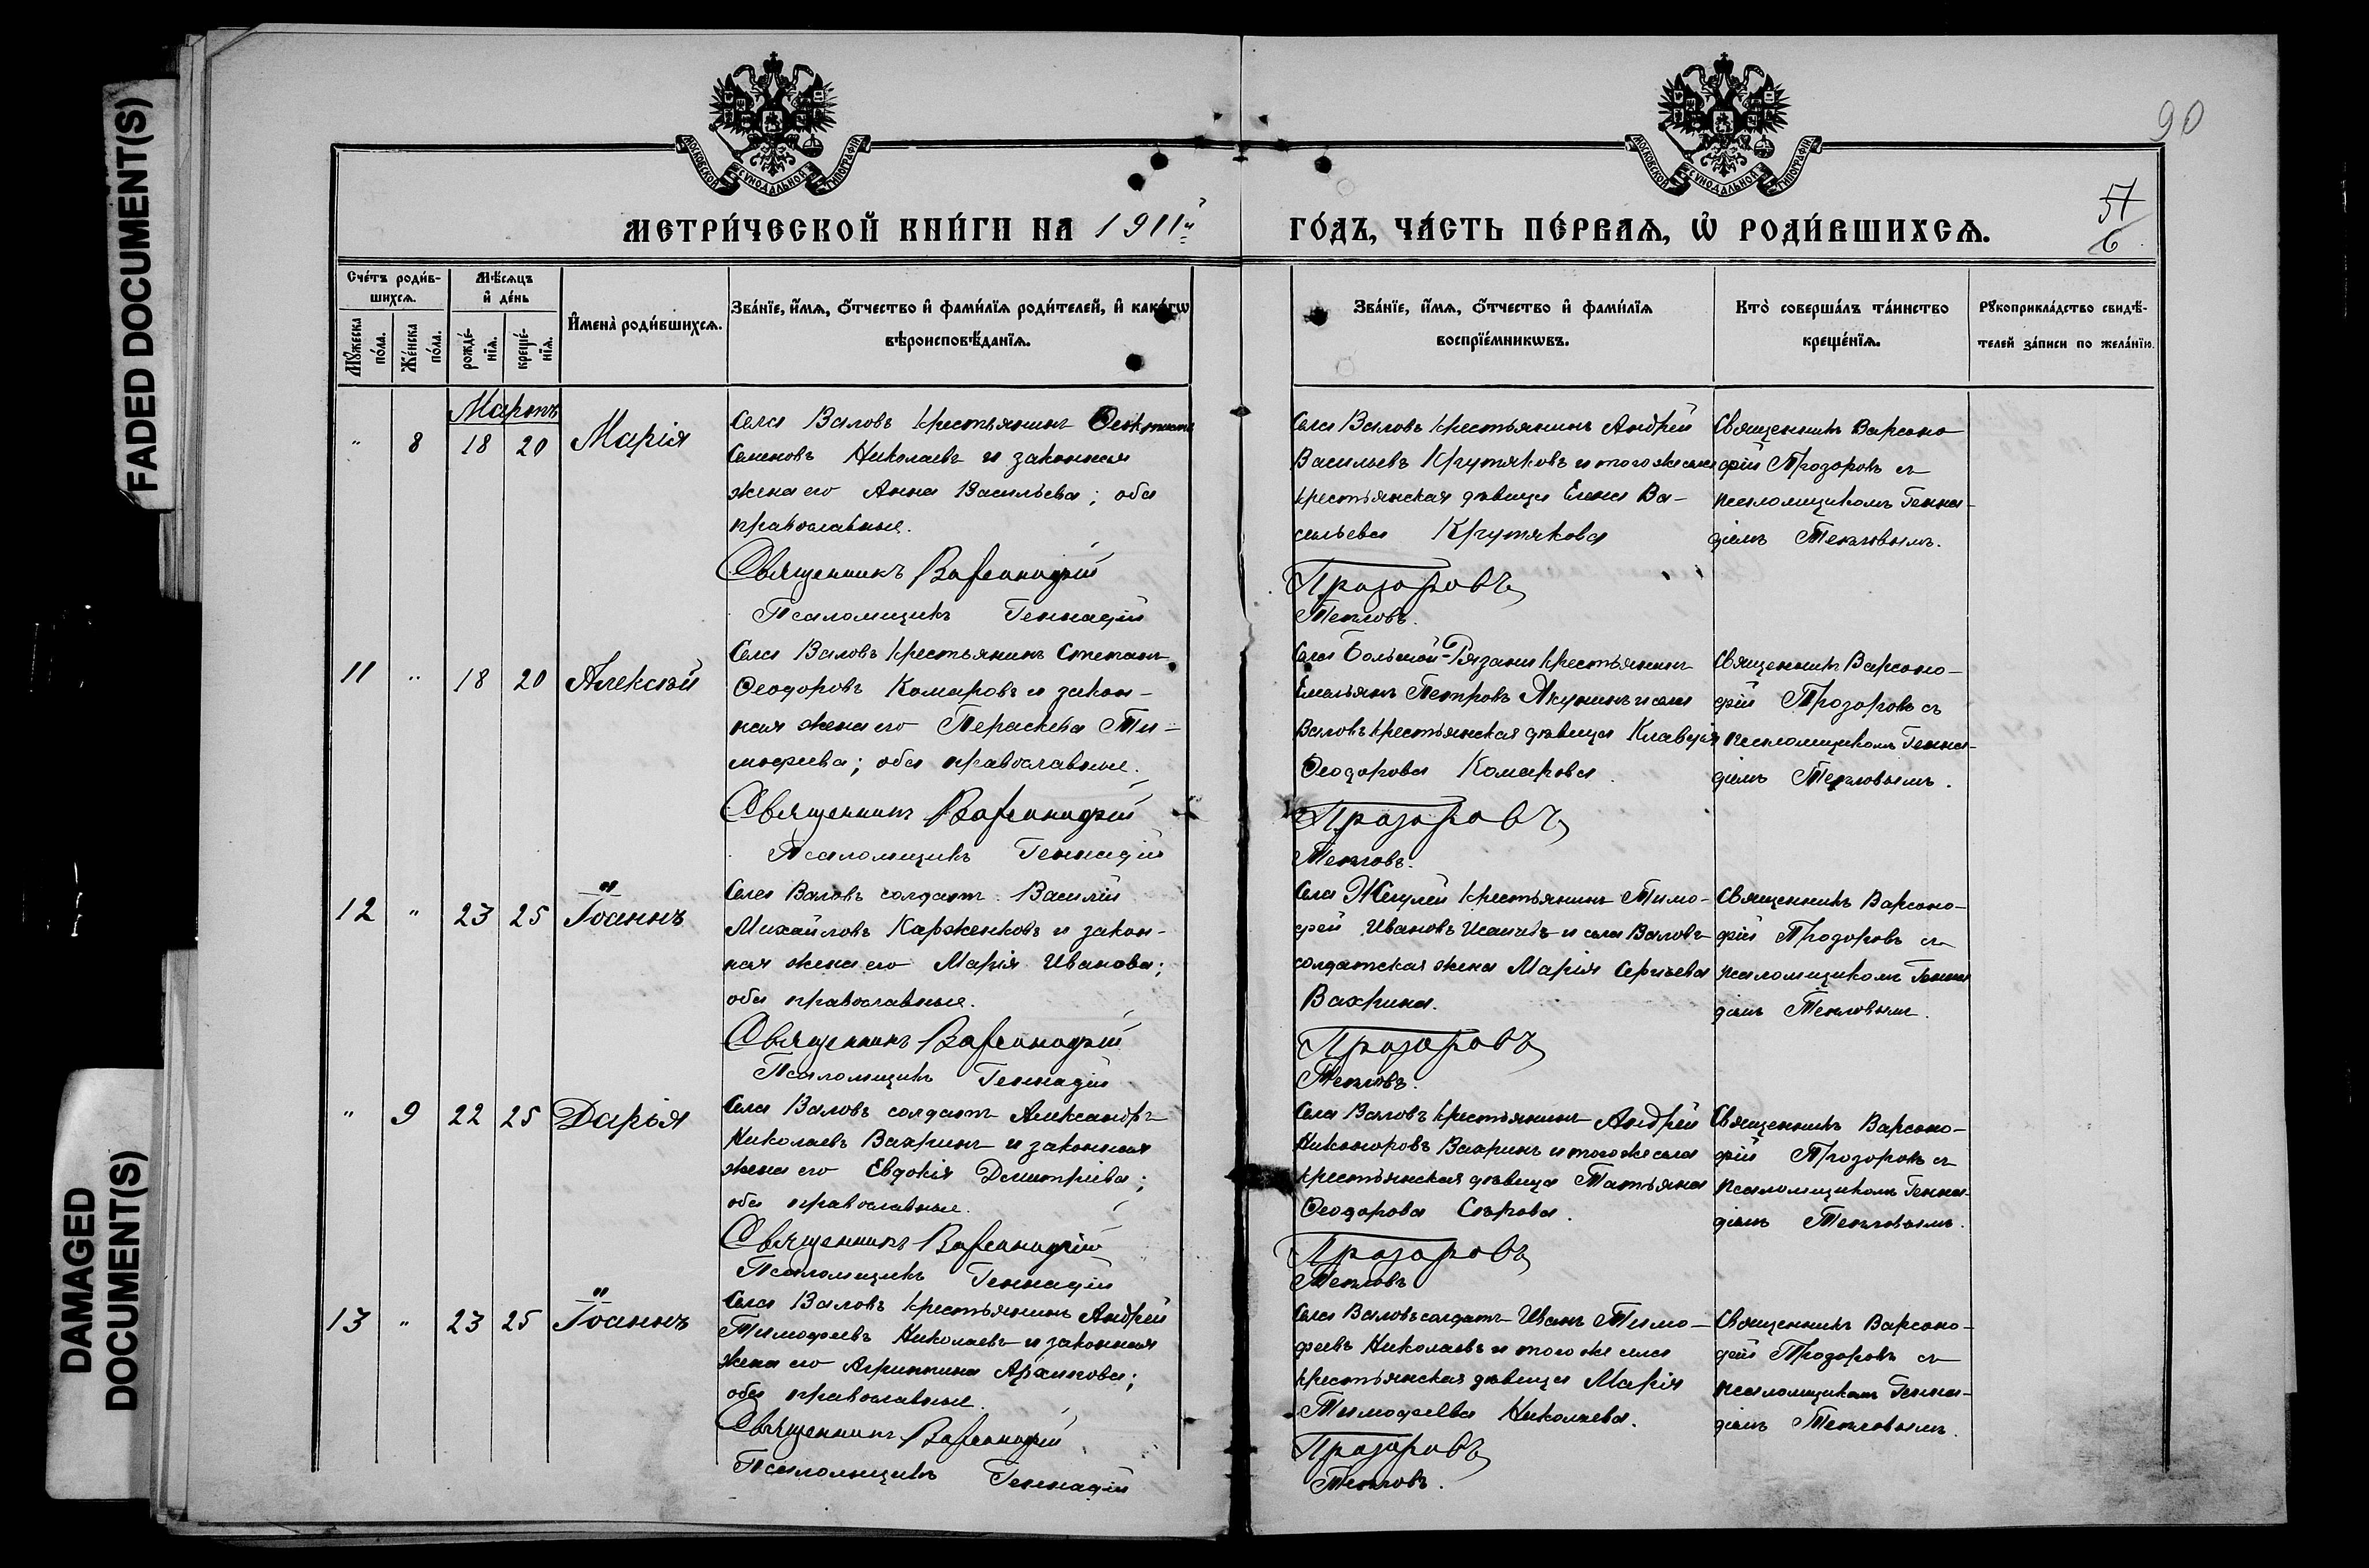 FADED DOCUMENT(S)
DAMAGED
DOCUMENT(S)
90
57
6
МОСКОВСКОЙ СѴНОДАЛЬНОЙ ТИПОГРАФІИ
МОСКОВСКОЙ СѴНОДАЛЬНОЙ ТИПОГРАФІИ
МЕТРИ́ЧЕСКОЙ КНИ́ГИ НА 1911й
ГО́ДЪ, ЧА́СТЬ ПЕ́РВАѦ, Ѡ РОДИ́ВШИХСѦ.
Сче́тъ роди́в-
шихсѧ.
Мꙋ́жеска
по́ла.
Же́нска
по́ла.
Мѣ́сѧцъ
и҆ де́нь
рожде́-
нїѧ.
креще́-
нїѧ.
И҆мена̀ роди́вшихсѧ.
Зва́нїе, и҆́мѧ, ѻ҆́тчество и҆ фами́лїѧ роди́телей, и҆ како́гѡ
вѣроисповѣ́данїѧ.
Зва́нїе, и҆́мѧ, ѻ҆́тчество и҆ фами́лїѧ
воспрїе́мникѡвъ.
Кто̀ соверша́лъ та́инство
креще́нїѧ.
Рꙋкоприкла́дство свидѣ́-
телей за́писи по жела́нїю.
Мартъ
" 8 18 20 Марія
Села Валовъ крестьянинъ Ѳеоктистъ
Семеновъ Николаевъ и законная
жена его Анна Васильева; оба
православные.
Священникъ Варсонофій
Псаломщикъ Геннадій
Села Валовъ крестьянинъ Андрей
Васильевъ Крутяковъ и того же села
крестьянская дѣвица Елена Ва-
сильева Крутякова
Прозоровъ
Тепловъ.
Священникъ Варсоно
фій Прозоровъ съ
псаломщикомъ Генна-
діемъ Тепловымъ.
11 " 18 20 Алексѣй
Села Валовъ крестьянинъ Степанъ
Ѳеодоровъ Комаровъ и закон-
ная жена его Пераскева Ти-
мофеева; оба православные.
Священникъ Варсонофій
Псаломщикъ Геннадій
Села Большой-Рязани крестьянинъ
Емельянъ Петровъ Якунинъ и села
Валовъ крестьянская дѣвица Клавдія
Ѳеодорова Комарова.
Прозоровъ
Тепловъ.
Священникъ Варсоно-
фій Прозоровъ съ
псаломщикомъ Генна-
діемъ Тепловымъ.
12 " 23 25 Іоаннъ
Села Валовъ солдатъ Василій
Михайловъ Карженковъ и закон-
ная жена его Марія Иванова;
оба православные.
Священникъ Варсонофій
Псаломщикъ Геннадій
Села Жегулей крестьянинъ Тимо-
фей Ивановъ Исаевъ и села Валовъ
солдатская жена Марія Сергѣева
Вахрина.
Прозоровъ
Тепловъ.
Священникъ Варсоно-
фій Прозоровъ съ
псаломщикомъ Генна
діемъ Тепловымъ.
" 9 22 25 Дарья
Села Валовъ солдатъ Александръ
Николаевъ Вахринъ и законная
жена его Евдокія Димитріева;
оба православные.
Священникъ Варсонофій
Псаломщикъ Геннадій
Села Валовъ крестьянинъ Андрей
Никоноровъ Вахринъ и того же села
крестьянская дѣвица Татьяна
Ѳеодорова Сѣрова.
Прозоровъ
Тепловъ
Священникъ Варсоно-
фій Прозоровъ съ
псаломщикомъ Генна-
діемъ Тепловымъ.
13 " 23 25 Іоаннъ
Села Валовъ крестьянинъ Андрей
Тимофеевъ Николаевъ и законная
жена его Агриппина Архипова;
оба православные.
Священникъ Варсонофій
Псаломщикъ Геннадій
Села Валовъ солдатъ Иванъ Тимо-
феевъ Николаевъ и того же села
крестьянская дѣвица Марія
Тимофеева Николаева.
Прозоровъ
Тепловъ.
Священникъ Варсоно-
фій Прозоровъ съ
псаломщикомъ Генна-
діемъ Тепловымъ.